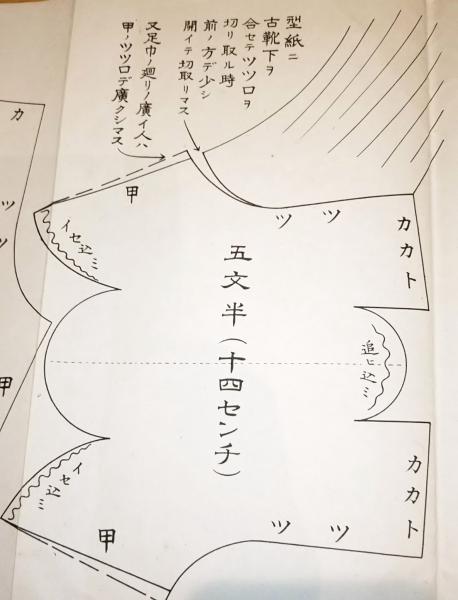 型紙ニ
古靴下ヲ
合セテツツロヲ
切リ取ル時
前ノ方デ少シ
開イテ切取リマス
又足巾ノ廻リノ廣イ人ハ
甲ノツツロデ廣クシマス
甲
イセ込ミ
ツ ツ
カカト
五文半(十四センチ)
追ヒ込ミ
イセ込ミ
甲
ツ ツ
カカト
カ
ツ
ツ
甲